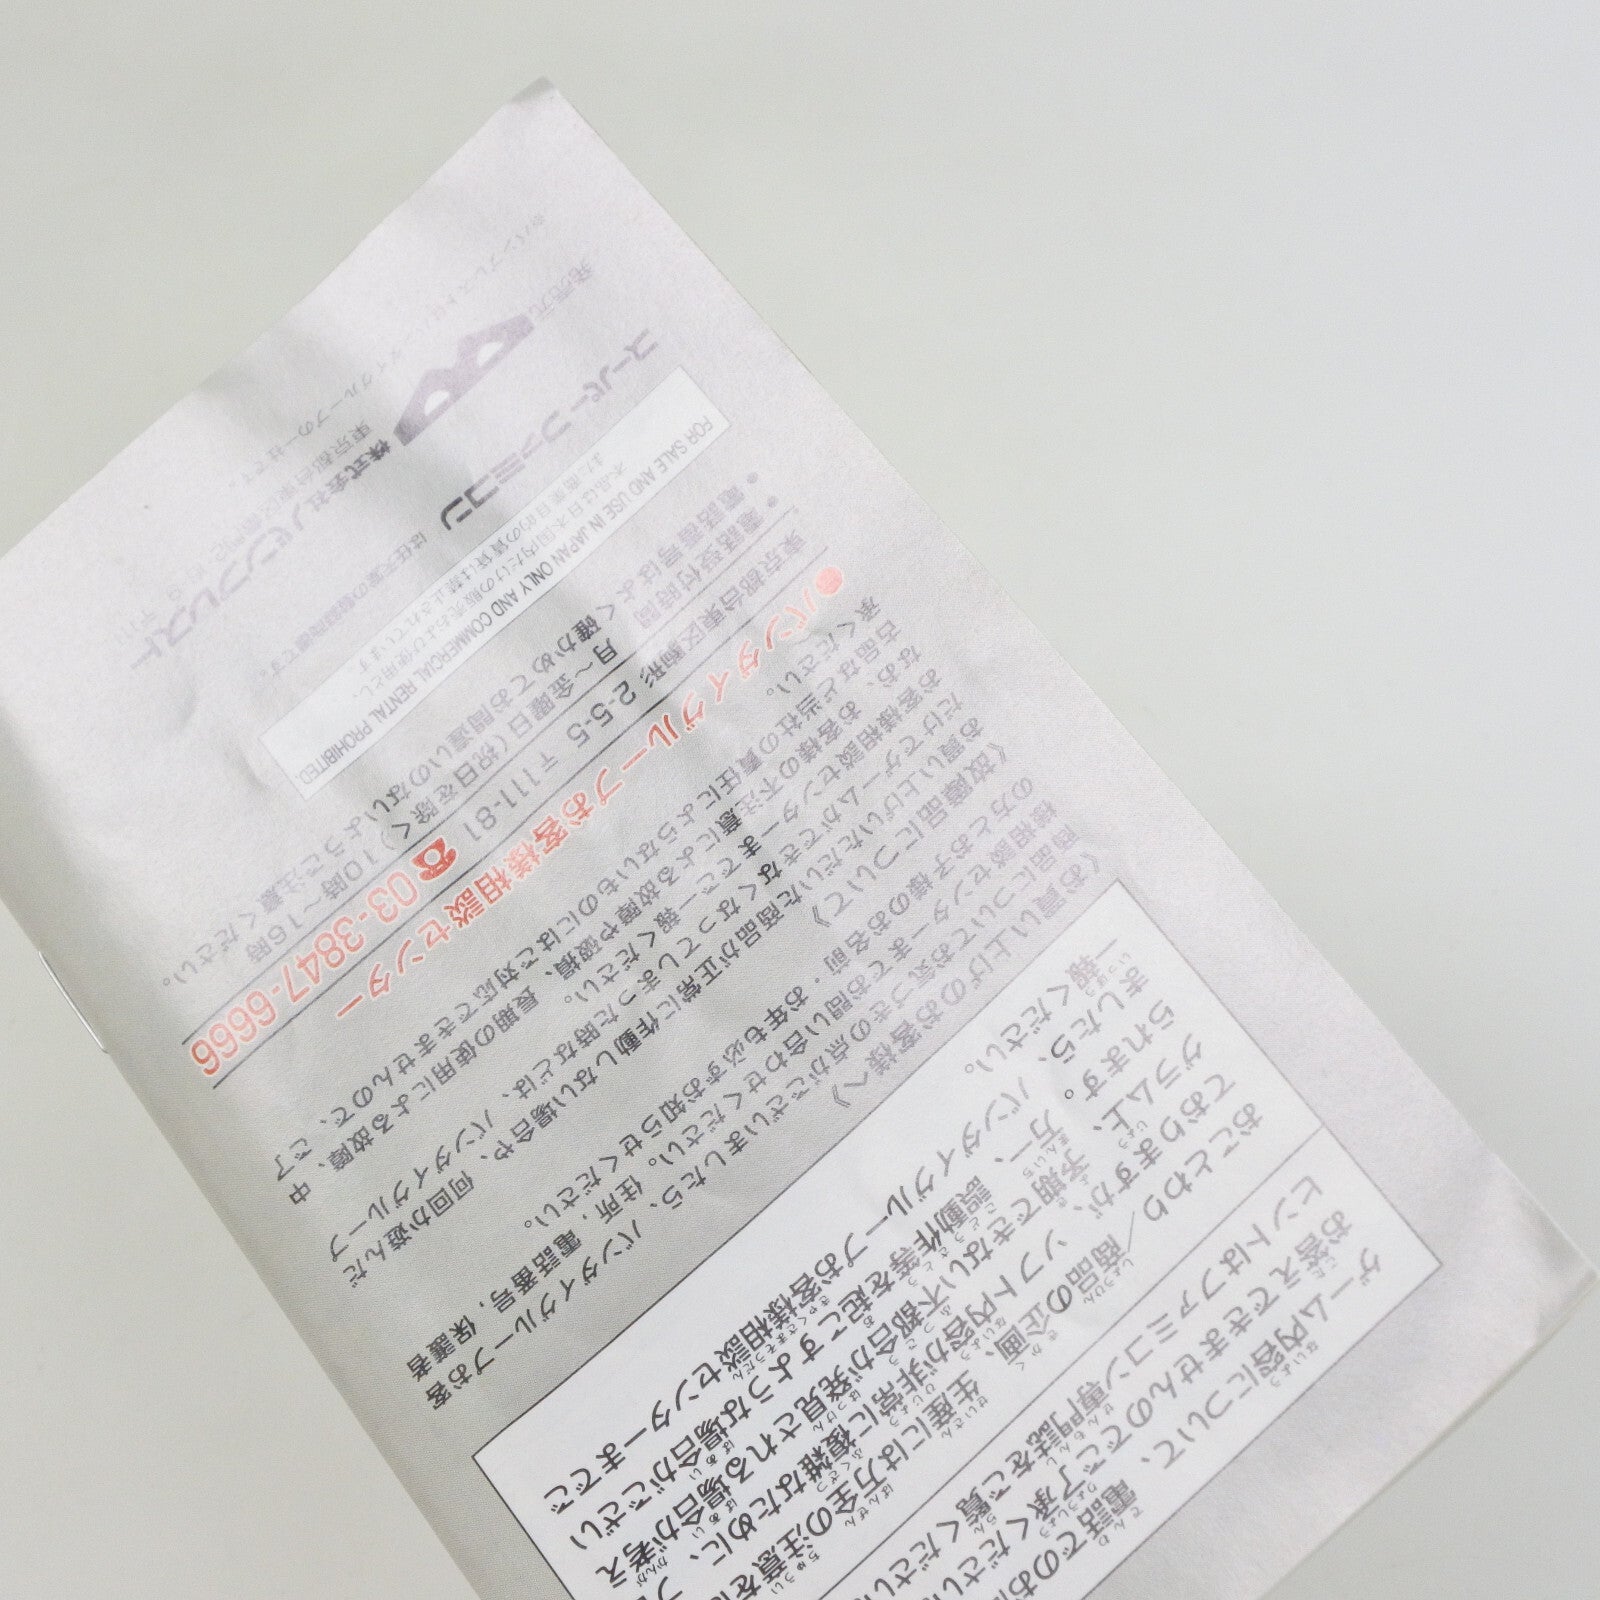 ゲーム内容について、電話でのお
お答えできませんのでご了承ください
ヒントはファミコン専門誌をご覧ください
おことわり／商品の企画、生産には万全の注意を
ておりますが、ソフト内容が非常に複雑なために、プ
グラム上、予期できない不都合が発見される場合が考え
られます。万一、誤動作等を起こすような場合がござい
ましたら、バンダイグループお客様相談センターまでご
一報ください。
《お買い上げのお客様へ》
商品についてお気づきの点がございましたら、バンダイグループお客
様相談センターまでお問い合わせください。住所，電話番号，保護者
の方とお子様のお名前・お年も必ずお知らせください。
《故障品について》
お買い上げいただいた商品が正常に作動しない場合や、何回か遊んだ
だけでゲームができなくなってしまった時などは、バンダイグループ
お客様相談センターまでご一報ください。
なお、お客様の不注意による故障や破損、長期の使用による故障、中
古品など当社の責任によらないものにはご対応できませんので、ご了
承ください。
●バンダイグループお客様相談センター
東京都台東区駒形 2-5-5 〒111-81 ☎03-3847-6666
●電話受付時間 月～金曜日(祝日を除く)10時～16時
●電話番号はよく確かめてお間違いのないようご注意ください。
FOR SALE AND USE IN JAPAN ONLY AND COMMERCIAL RENTAL PROHIBITED
本品は日本国内だけの販売および使用とし、
また商業目的の賃貸は禁止されています
スーパーファミコン は任天堂の登録商標です。
発売元 株式会社バンプレスト